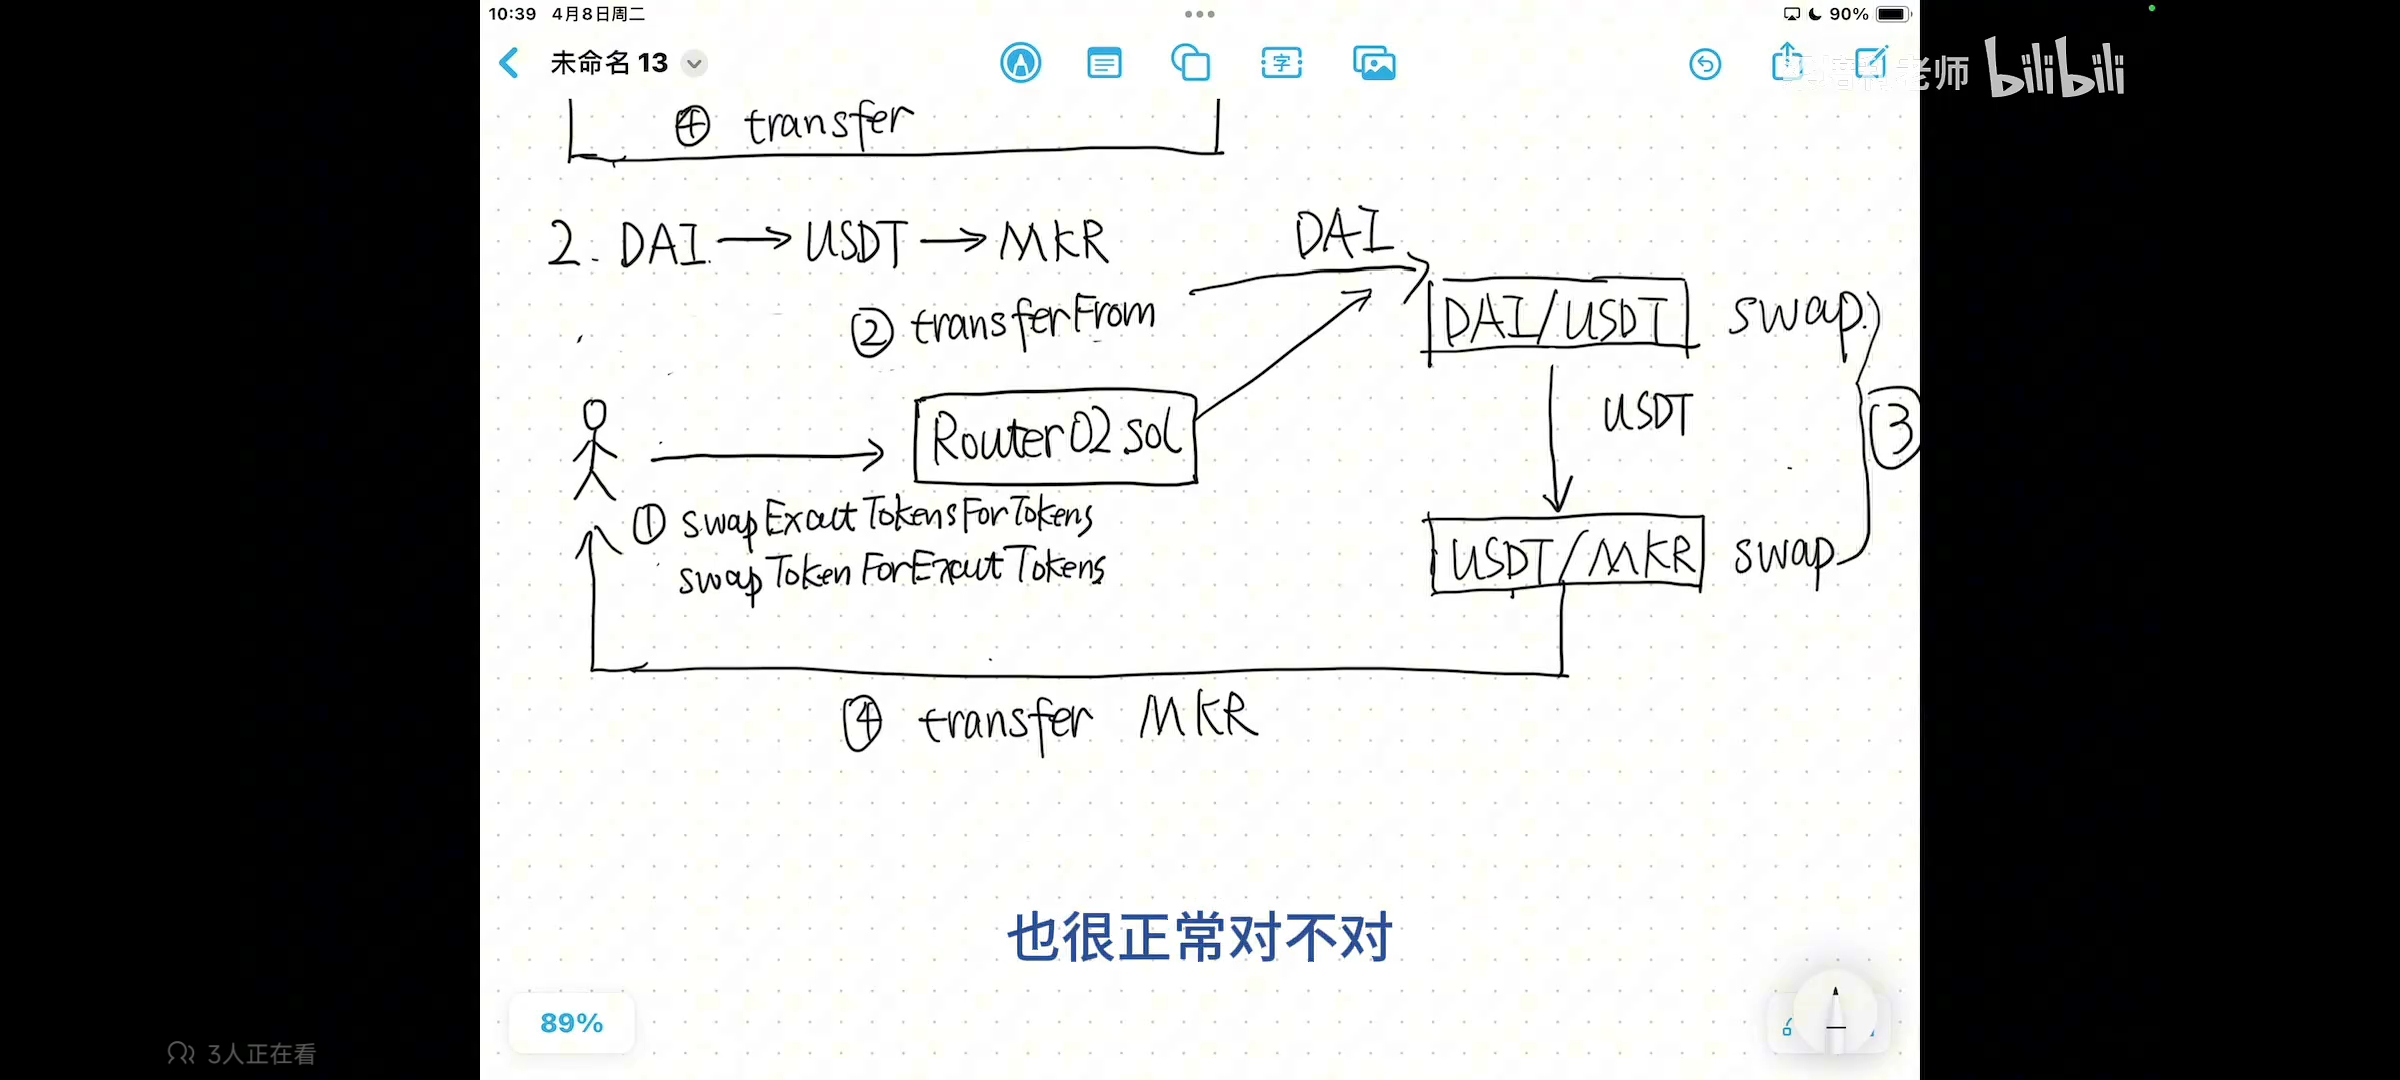 10:39 4月8日周二
90%
未命名 13
字
老师 bilibili
④ transfer
2. DAI → USDT → MKR
DAI
② transferFrom
DAI/USDT swap
USDT
③
Router02 sol
① swapExactTokensForTokens
swapTokenForExactTokens
USDT/MKR swap
④ transfer MKR
也很正常对不对
89%
3人正在看